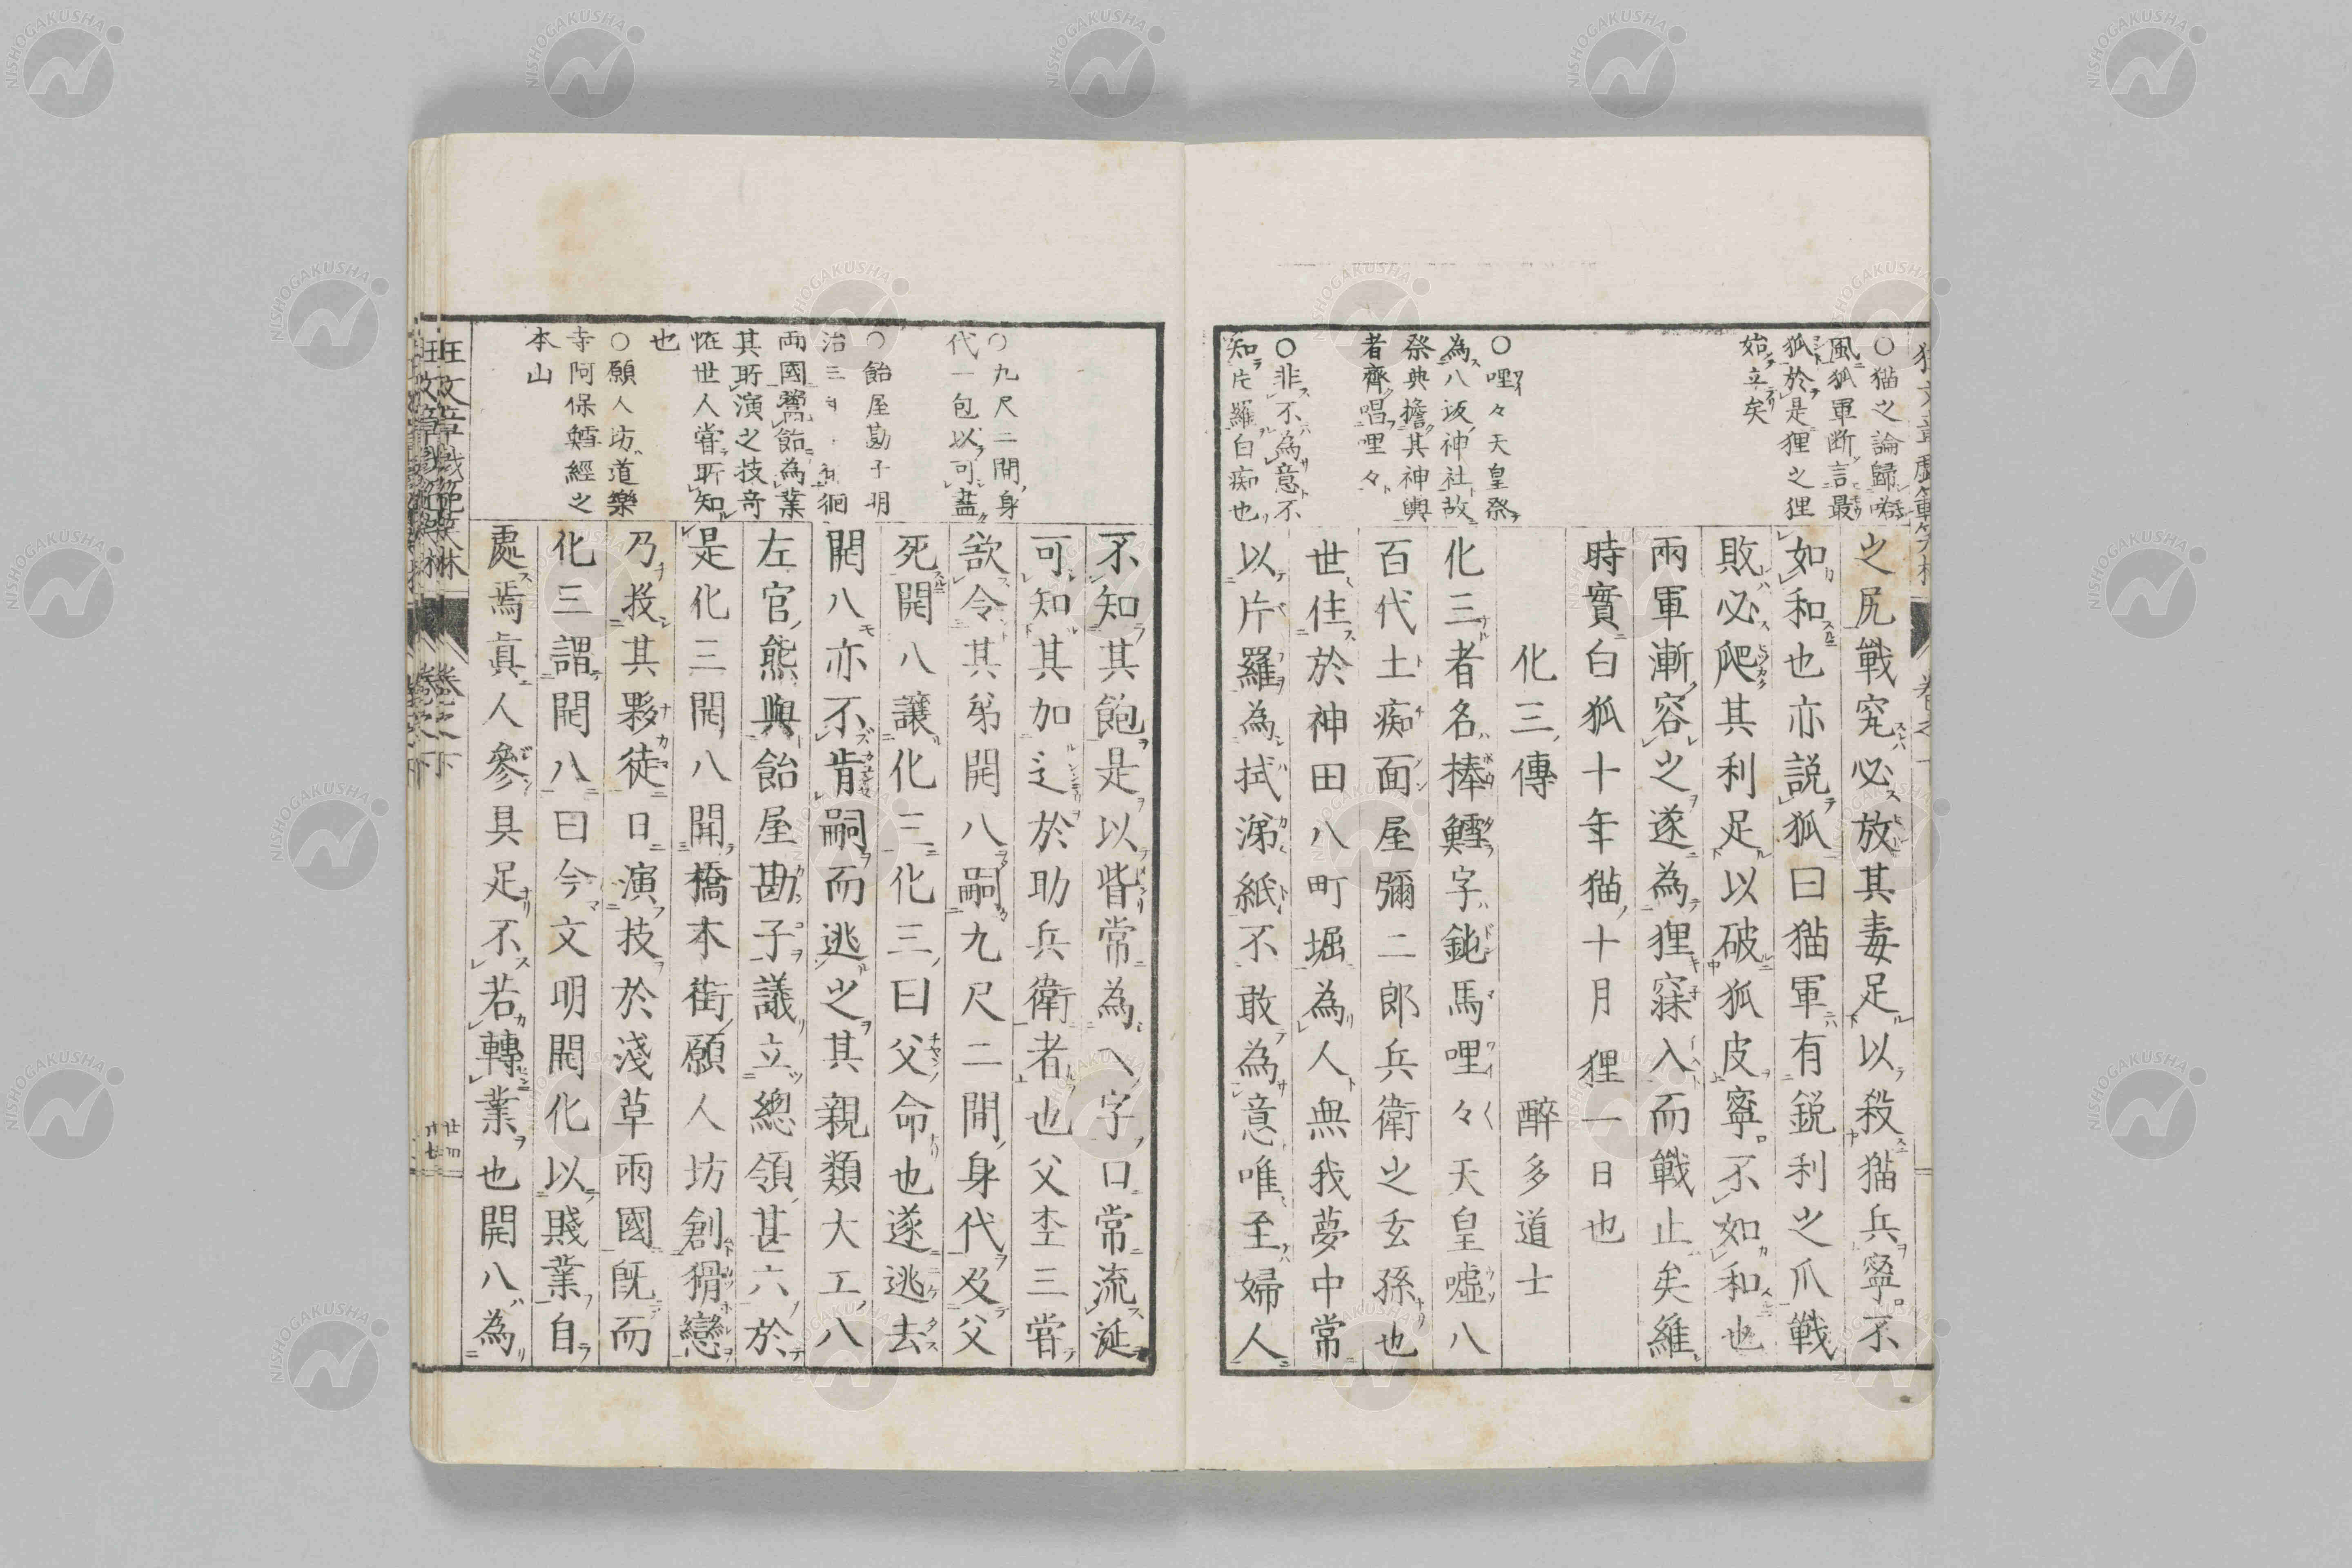 ○猫之論歸
風狐軍断言最
狐於是狸之狸
始立矣
○哩々天皇祭
為八坂神社故
祭典擔其神輿
者齊唱哩々
○非不為意不
知片羅白痴也
之尻戰究必放其毒足以殺猫兵寧不
如和也亦説狐曰猫軍有鋭利之爪戰
敗必爬其利足以破狐皮寧不如和也
兩軍漸容之遂為狸寐入而戰止矣維
時實白狐十年猫十月狸一日也
化三傳 醉多道士
化三者名捧鱈字鈍馬哩々天皇噓八
百代土痴面屋彌二郎兵衛之玄孫也
世住於神田八町堀為人無我夢中常
以片羅為拭涕紙不敢為意唯至婦人
○九尺二間身
代一包以可蓋
○飴屋勘子明
治三
兩國鬻飴為業
其所演之技奇
怪世人甞所知
也
○願人坊道樂
寺阿保鱈經之
本山
不知其飽是以皆常為ヘ字口常流涎
可知其加辶於助兵衛者也父杢三甞
欲令其弟開八嗣九尺二間身代及父
死開八讓化三化三曰父命也遂逃去
開八亦不肯嗣而逃之其親類大工八
左官熊與飴屋勘子議立總領甚六於
是化三開八開橋本街願人坊創猾戀
乃投其夥徒日演技於淺草兩國既而
化三謂開八曰今文明開化以賤業自
處焉眞人參具足不若轉業也開八為
狂文章
卷之下
NISHOGAKUSHA